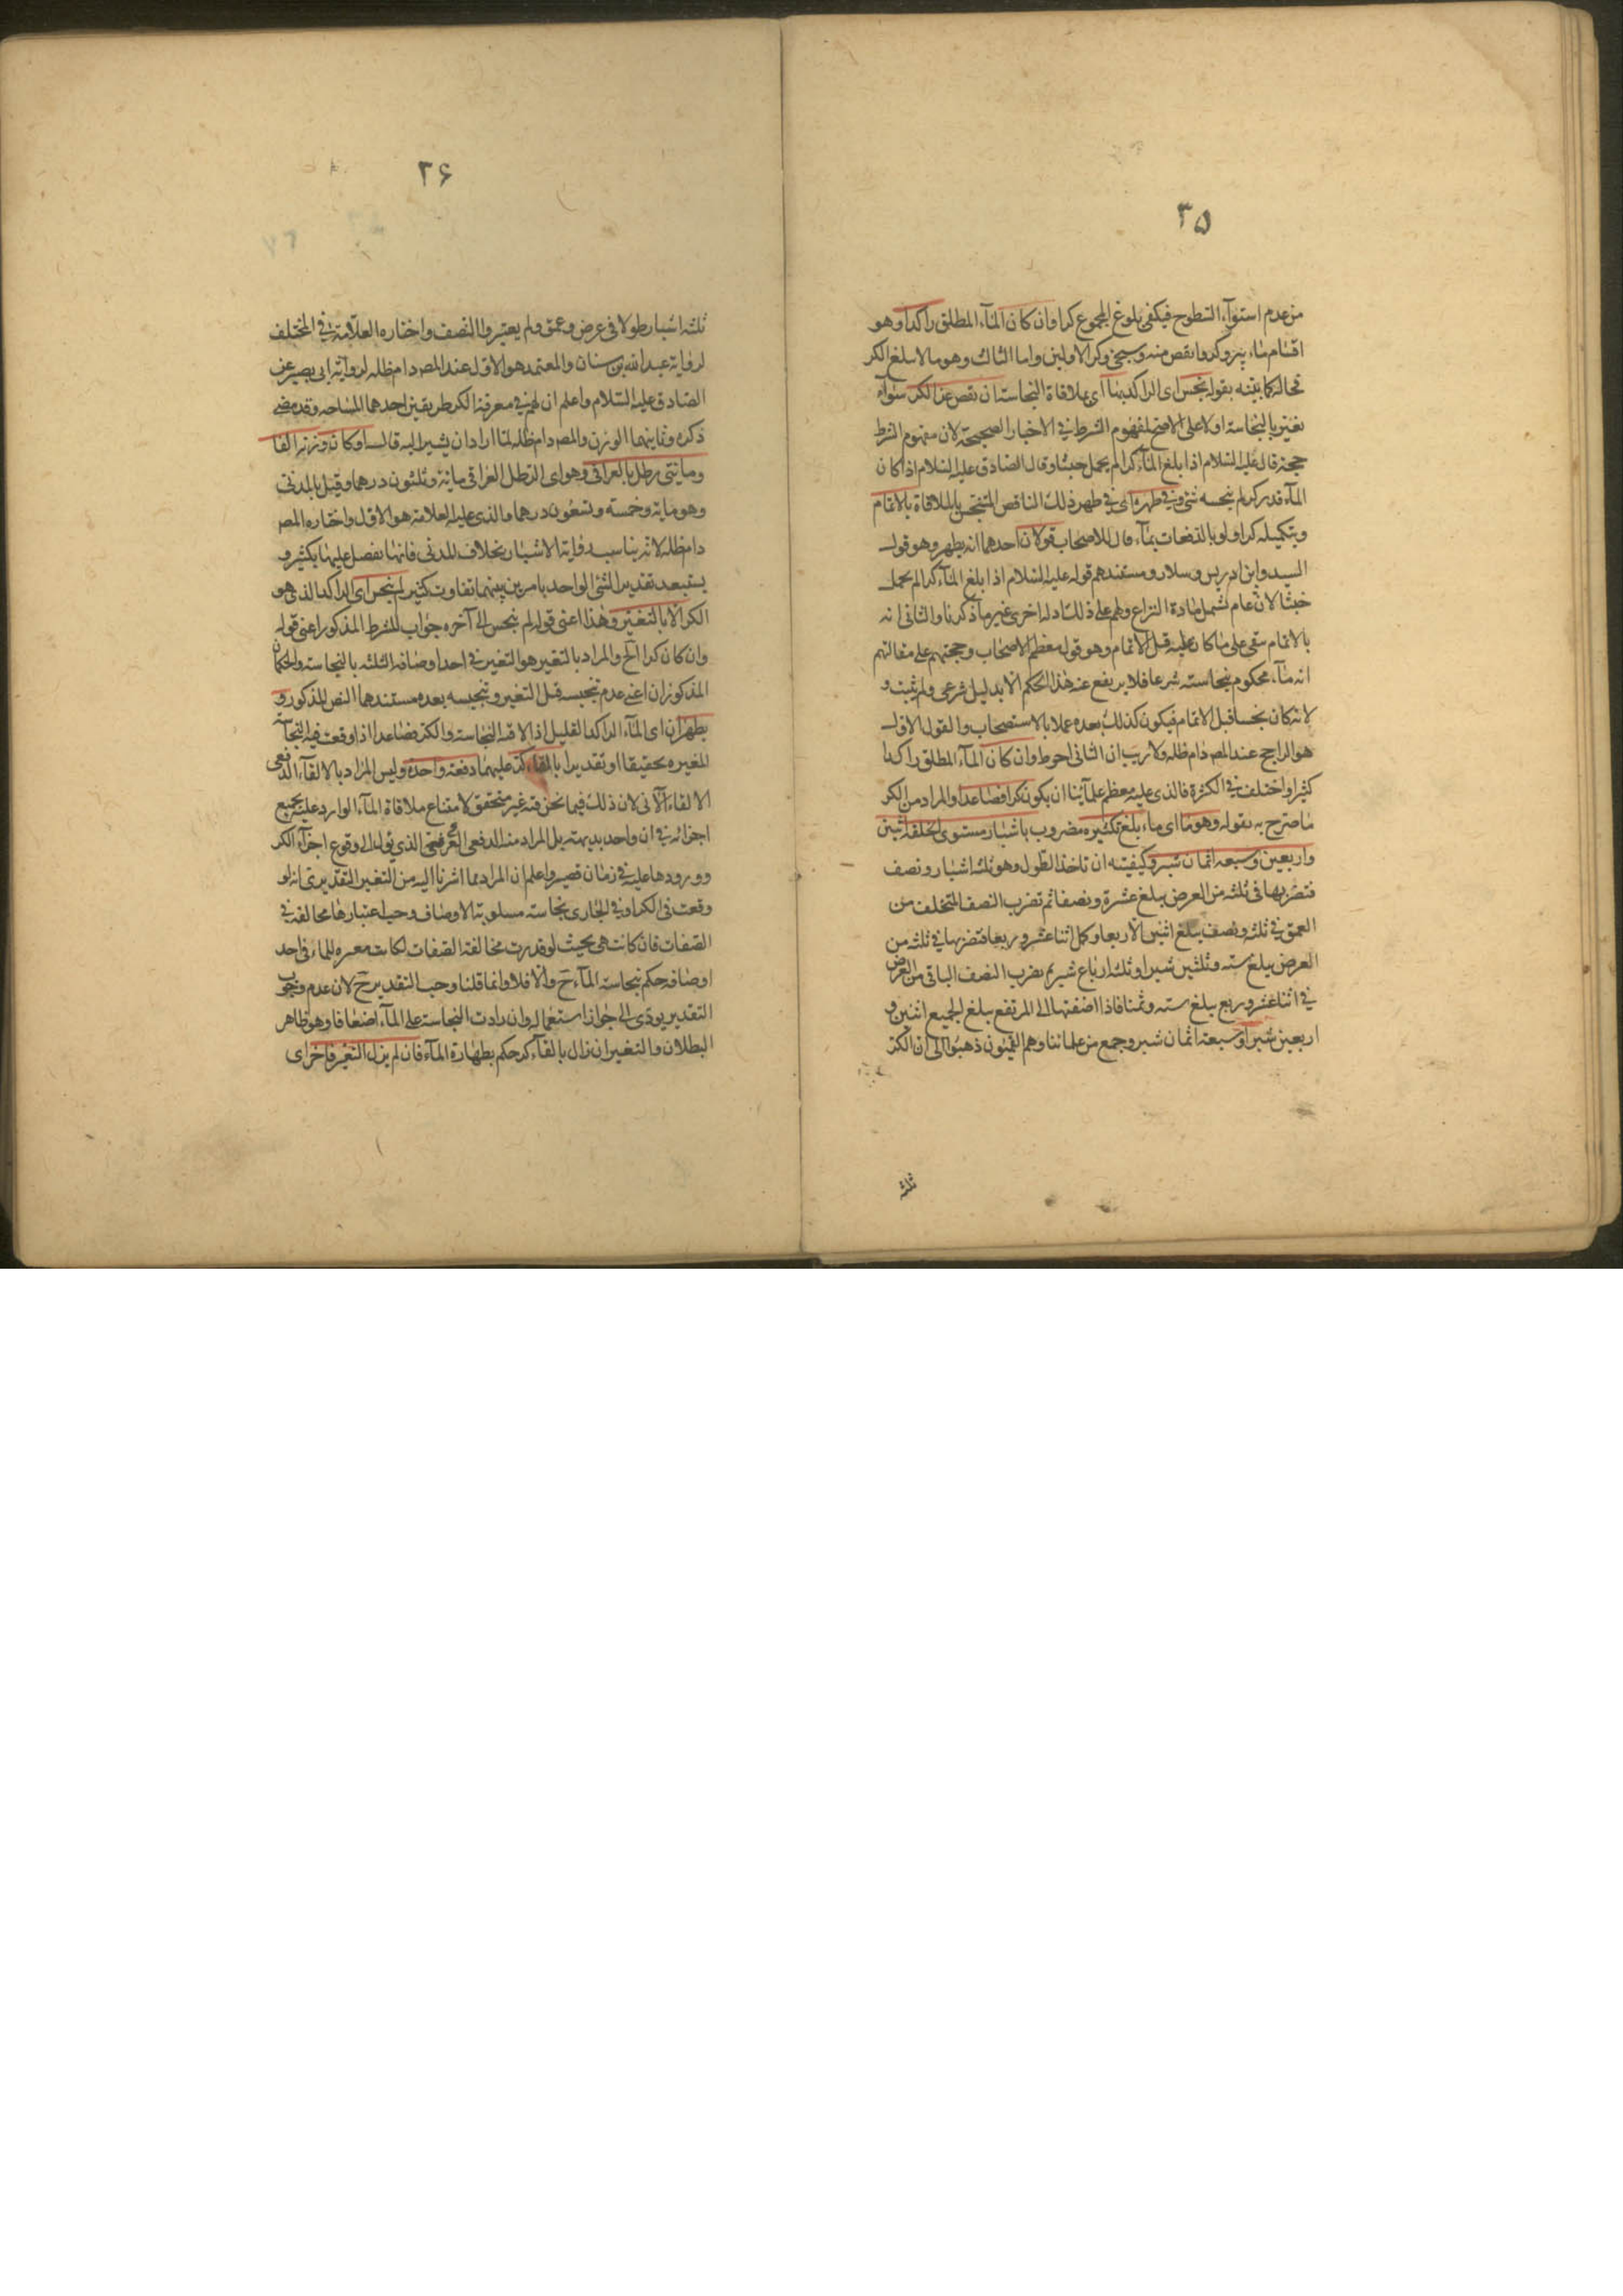 ٣٥
من عدم استوآء السطوح فيكفى بلوغ المجموع كرا وان كان المآء المطلق راكدا وهو
اقسام ماء بئر وكر وما نقص منه وسيجئ وكر الاولين واما الثالث وهو ما لا يبلغ الكر
فحاله كما بينه بقوله نجس اى الراكد بها اى بملاقاة النجاسة ان نقص عن الكر سوآء
تغير بالنجاسة اولا على الاصح لمفهوم الشرط فى الاخبار الصحيحة لان مفهوم الشرط
حجة قال عليه السلام اذا بلغ المآء كرا لم يحمل خبثا وقال الصادق عليه السلام اذا كان
المآء قدر كر لم ينجسه شئ وفى طهره اى فى طهر ذلك الناقص المتنجس بالملاقاة بالاتمام
وبتكميله كرا ولو بالدفعات بمآء قال للاصحاب قولان احدهما انه يطهر وهو قول
السيد وابن ادريس وسلار ومستندهم قوله عليه السلام اذا بلغ المآء كرا لم يحمل
خبثا لانه عام لشمل مادة النزاع ولهم على ذلك ادلة اخرى غير ما ذكرنا والثانى انه
بالاتمام بقى على ما كان عليه قبل الاتمام وهو قول معظم الاصحاب وحجتهم على مقالتهم
انه مآء محكوم بنجاسته شرعا فلا يرتفع عنه هذا الحكم الا بدليل شرعى ولم يثبت و
لانه كان نجسا قبل الاتمام فيكون كذلك بعده عملا بالاستصحاب والقول الاول
هو الراجح عند المصر دام ظله ولا ريب ان الثانى احوط وان كان المآء المطلق راكدا
كثيرا واختلف فى الكثرة فالذى عليه معظم علمآئنا ان يكون كرا فصاعدا والمراد من الكر
ما صرح به بقوله وهو ما اى ماء بلغ تكثيره مضروب باشبار مستوى الخلقة اثنين
واربعين وسبعه اثمان شبر وكيفيته ان تاخذ الطول وهو ثلثه اشبار ونصف
فتضربها فى ثلثه من العرض يبلغ عشرة ونصفا ثم تضرب النصف المتخلف من
العمق فى ثلثه ونصف يبلغ اثنين الا ربعا وكمل اثنا عشر وربعا فتضربها فى ثلثه من
العرض يبلغ سته وثلثين شبرا وثلثه ارباع شبر ثم تضرب النصف الباقى من العرض
فى اثنا عشر وربع يبلغ سته وثمنا فاذا اضفتها الى المرتفع بلغ الجميع اثنين و
اربعين شبرا وسبعة اثمان شبر وجمع من علمائنا وهم القميون ذهبوا الى ان الكر
ثلثه
٢۶
ثلثه اشبار طولا فى عرض وعمق ولم يعتبروا النصف واختاره العلامة فى المختلف
لرواية عبد الله بن سنان والمعتمد هو الاول عند المصر دام ظله لرواية ابى بصير عن
الصادق عليه السلام واعلم ان لهم فى معرفة الكر طريقين احدهما المساحه وقد مضى
ذكره وثانيهما الوزن والمصر دام ظله لما اراد ان يشير اليه قال او كان وزنه الفا
ومائتى رطل بالعراقى وهو اى الرطل العراقى مائة وثلثون درهما وقيل بالمدنى
وهو مايه وخمسة وتسعون درهما والذى عليه العلامة هو الاول واختاره المصر
دام ظله لانه يناسب رواية الاشبار بخلاف المدنى فانها تفضل عليها بكثير و
يستبعد تقدير الشئ الواحد بامرين بينهما تفاوت كثير لم ينجس اى الراكد الذى هو
الكر الا بالتغير وهذا اعنى قوله لم ينجس الى آخره جواب للشرط المذكور اعنى قوله
وان كان كرا الخ والمراد بالتغير هو التغير فى احد اوصافه الثلثه بالنجاسة والحكمان
المذكوران اعنى عدم تنجيسه قبل التغير وتنجيسه بعده مستندهما النص المذكور و
يطهران اى المآء الراكد القليل اذا لاقته النجاسة والكر فصاعدا اذا وقعت فيه النجاسة
المغيره تحقيقا او تقديرا بالقاء كر عليهما دفعة واحدة وليس المراد بالالقآء الدفعى
الالقاء الآنى لان ذلك فيما نحن فيه غير متحقق لامتناع ملاقاة المآء الوارد عليه بجميع
اجزائه فى ان واحد بديهة بل المراد منه الدفعى العرفى الذى يؤل الى وقوع اجزآء الكر
وورودها عليه فى زمان قصير واعلم ان المراد مما اشرنا اليه من التغير التقديرى انه لو
وقعت فى الكر او فى الجارى نجاسة مسلوبة الاوصاف وجب اعتبارها مخالفة فى
الصفات فان كانت هى بحيث لو قدرت مخالفة الصفات لكانت مغيره للماء فى احد
اوصافه حكم بنجاسة المآء ح والا فلا وانما قلنا وجب التقدير ح لان عدم وجوب
التقدير يودى الى جواز استعماله وان زادت النجاسة على المآء اضعافا وهو ظاهر
البطلان والتغير ان زال بالقآء كر حكم بطهارة المآء فان لم يزل التغير فاخر اى